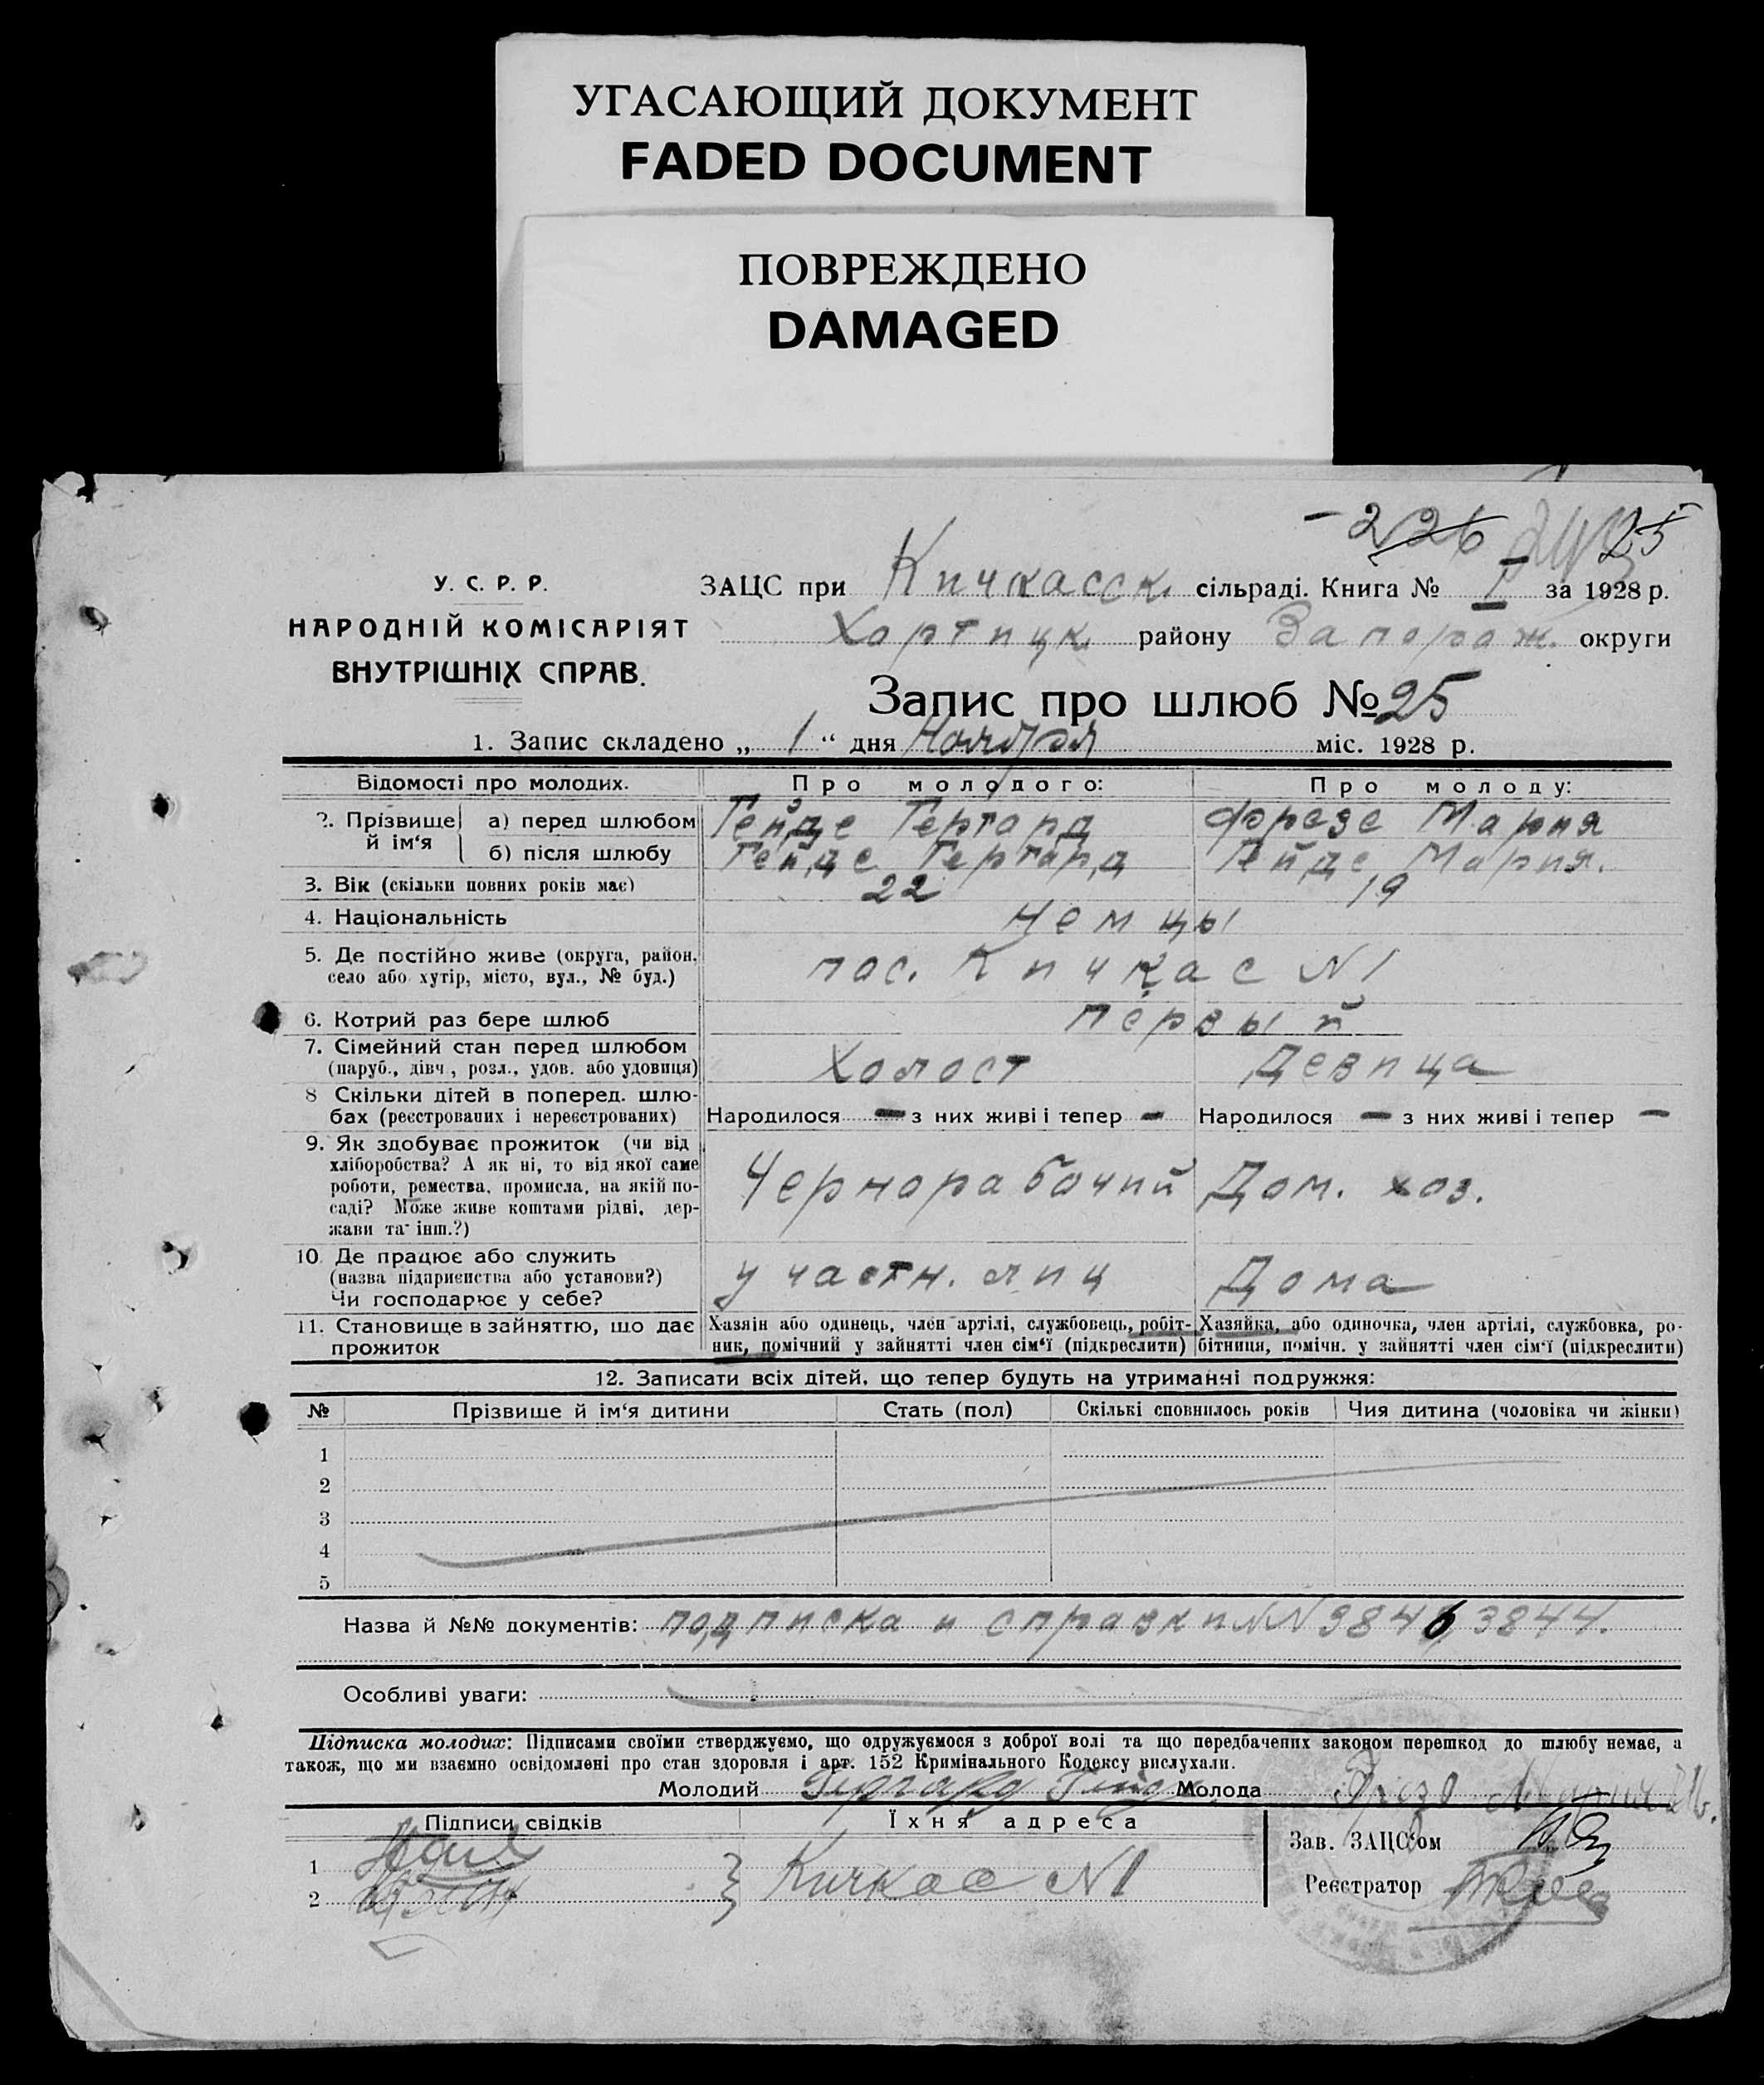 УГАСАЮЩИЙ ДОКУМЕНТ
FADED DOCUMENT
ПОВРЕЖДЕНО
DAMAGED
25
У. С. Р. Р.
НАРОДНІЙ КОМІСАРІЯТ
ВНУТРІШНІХ СПРАВ.
ЗАЦС при Кичкасск. сільраді. Книга № I за 1928 р.
Хортицк. району Запорож. округи
Запис про шлюб № 25
1. Запис складено „ 1 “ дня Ноября міс. 1928 р.
Відомості про молодих. Про молодого: Про молоду:
2. Прізвище й ім‘я а) перед шлюбом Гейде Гергард Фрезе Мария
б) після шлюбу Гейде Гергард Гейде Мария.
3. Вік (скільки повних років має) 22 19
4. Національність Немцы
5. Де постійно живе (округа, район, село або хутір, місто, вул., № буд.) пос. Кичкас N1
6. Котрий раз бере шлюб первый
7. Сімейний стан перед шлюбом Холост Девица
(паруб., дівч., розл., удов. або удовиця)
8 Скільки дітей в поперед. шлю-
бах (реєстрованих і нереєстрованих) Народилося — з них живі і тепер — Народилося — з них живі і тепер —
9. Як здобуває прожиток (чи від
хліборобства? А як ні, то від якої саме
роботи, ремества, промисла, на якій по- Чернорабочий Дом. хоз.
саді? Може живе коштами рідні, дер-
жави та інш.?)
10. Де працює або служить
(назва підприємства або установи?) у частн. лиц Дома
Чи господарює у себе?
11. Становище в зайняттю, що дає прожиток
Хазяін або одинець, член артілі, службовець, робіт-
ник, помічний у зайнятті член сім‘ї (підкреслити)
Хазяйка, або одиночка, член артілі, службовка, ро-
бітниця, помічн. у зайнятті член сім‘ї (підкреслити)
12. Записати всіх дітей, що тепер будуть на утриманні подружжя:
№ Прізвище й ім‘я дитини Стать (пол) Скількі сповнилось років Чия дитина (чоловіка чи жінки)
1
2
3
4
5
Назва й №№ документів: подписка и справки NN 3846, 3844.
Особливі уваги:
Підписка молодих: Підписами своїми стверджуємо, що одружуємося з доброї волі та що передбачених законом перешкод до шлюбу немає, а
також, що ми взаємно освідомлені про стан здоровля і арт. 152 Кримінального Кодексу вислухали.
Молодий Гергард Гейде Молода Фрезе Мария
Підписи свідків Їхня адреса
Зав. ЗАЦС‘ом
1
2
Кичкас N1
Реєстратор